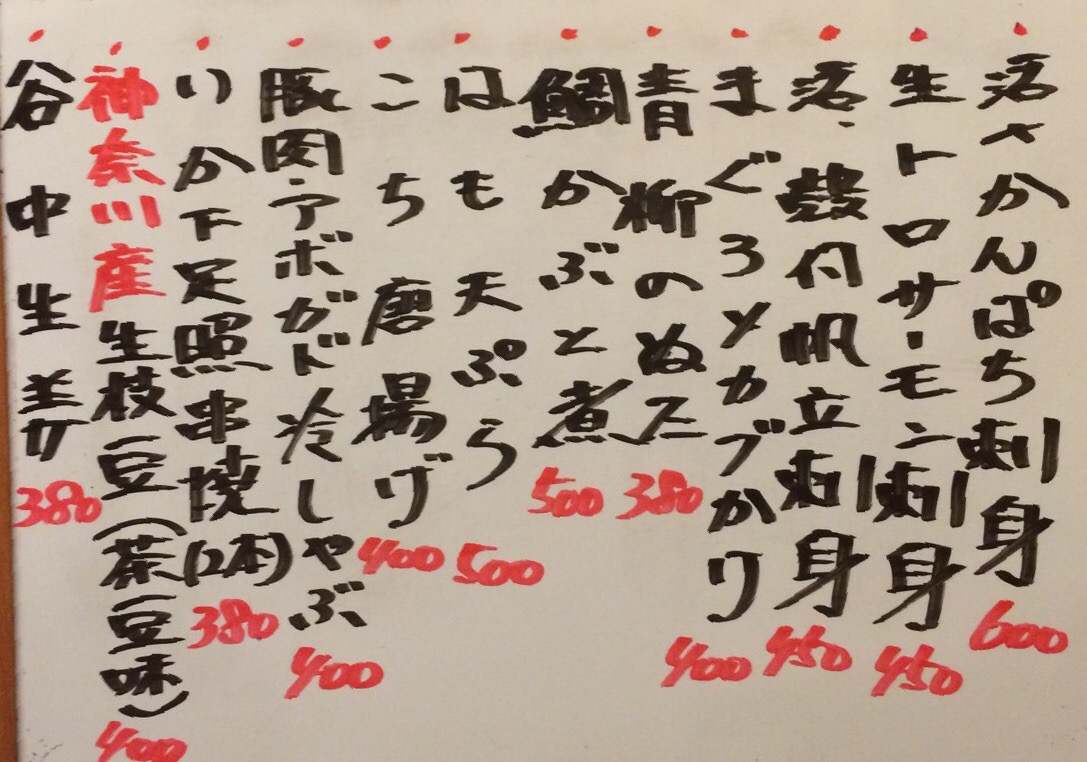 活〆かんぱち刺身 600
生トロサーモン刺身 450
活・殻付帆立刺身 450
まぐろメカブかけ 400
青柳のぬた 380
鯛かぶと煮 500
はも天ぷら 500
こち唐揚げ 400
豚肉アボガド冷しゃぶ 400
いか下足照串焼(2本) 380
神奈川産生枝豆(茶豆味) 400
谷中生姜 380